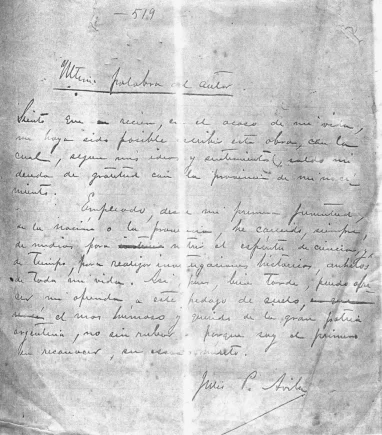 — 519
Ultima palabra del autor
Siento que recien, en el ocaso de mi vida,
me haya sido posible escribir esta obra, con la
cual, segun mis ideas y sentimientos, saldo mi
deuda de gratitud con la provincia de mi naci-
miento.
Empleado, desde mi primera juventud,
en la nación o la provincia, he carecido, siempre
de medios, para nutrir el espíritu de ciencia, y
de tiempo, para realizar investigaciones historicas, anhelos
de toda mi vida. Así pues, bien tarde, puedo ofre
cer mi ofrenda a este pedazo de suelo,
el mas hermoso y querido de la gran patria
argentina, no sin rubor porque soy el primero
en reconocer, su escaso
Julio P. Avila